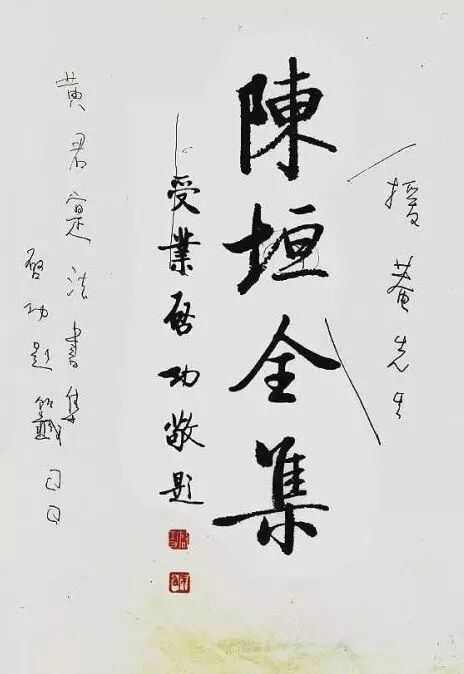 援菴先生
陳垣全集
受業啓功敬題
黄君寔法書集
啓功題籤 口口